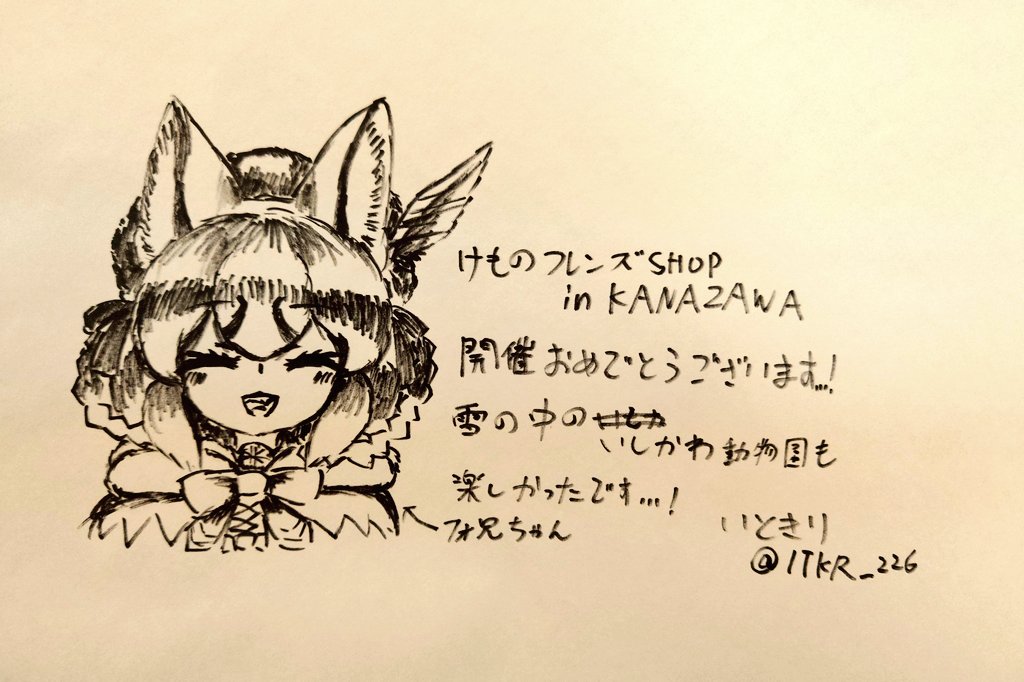 けものフレンズSHOP
in KANAZAWA
開催おめでとうございます…!
雪の中の
いしかわ動物園も
楽しかったです…!
フォ兄ちゃん
いときり
@ITKR_226